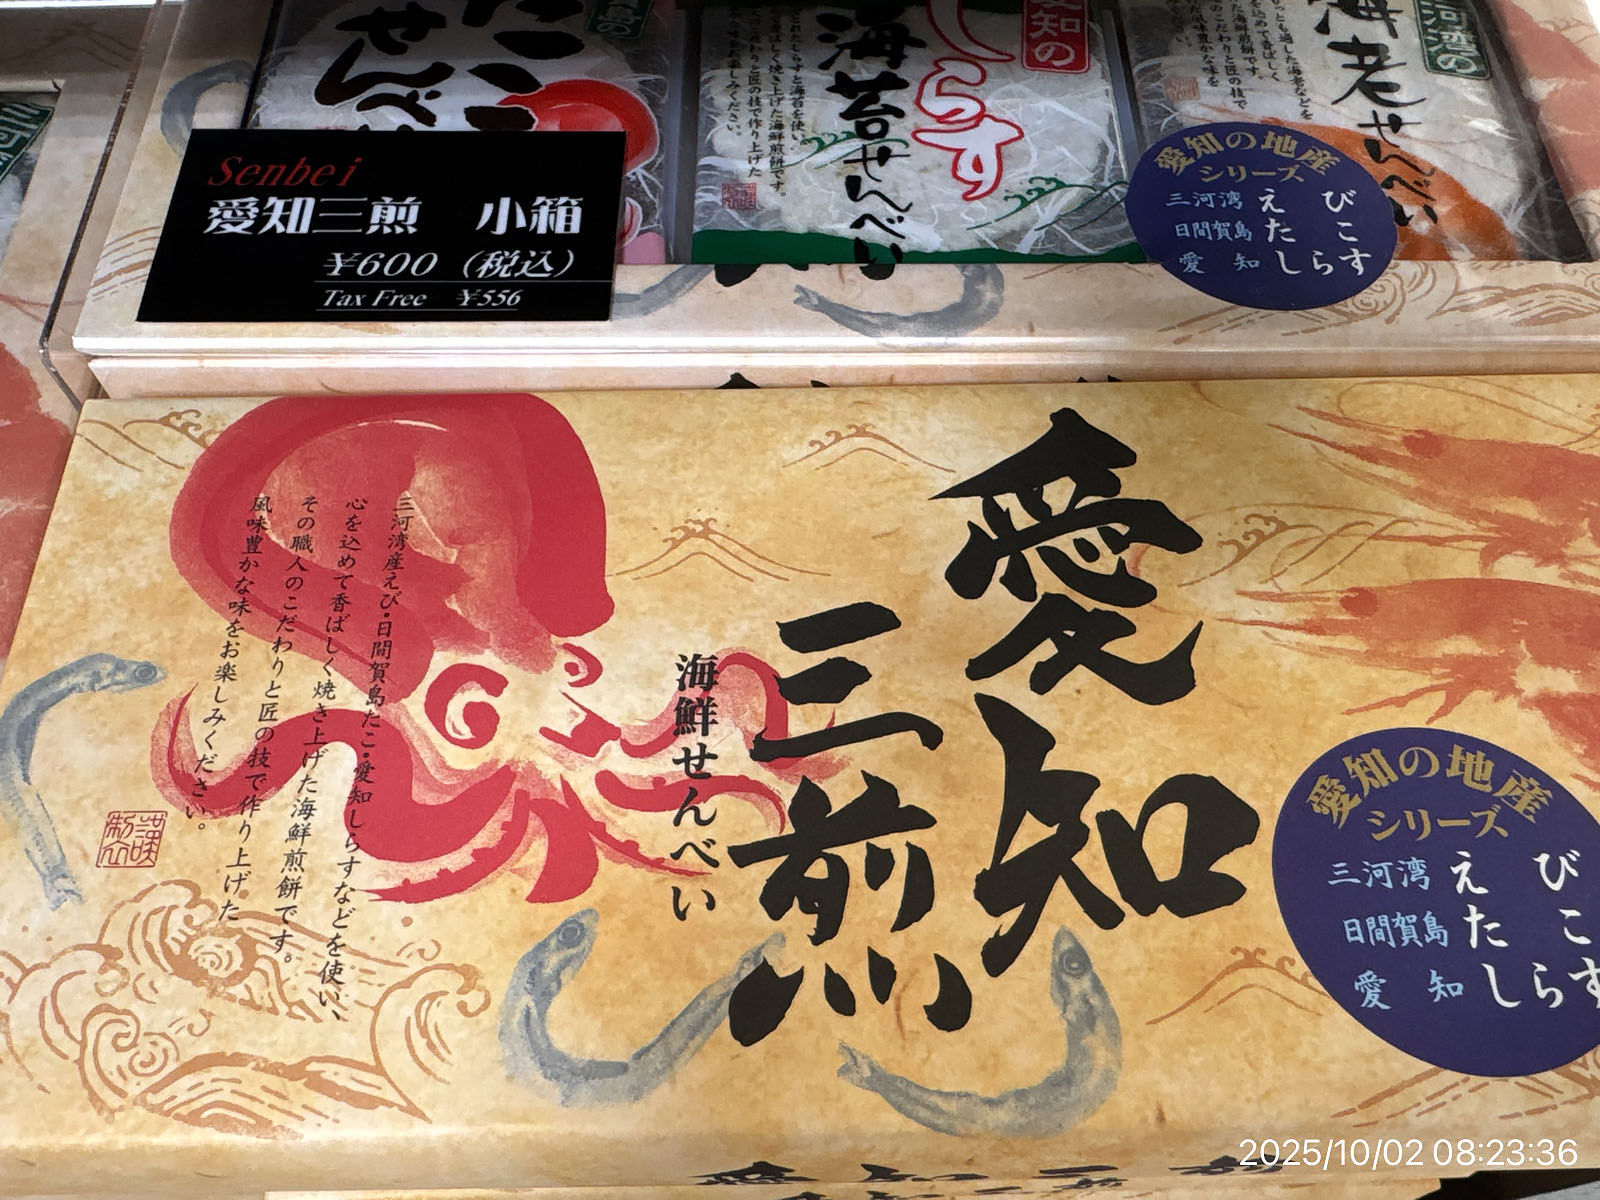 たこ
せんべい
愛知の
しらす
海苔せんべい
三河湾の
海老せんべい
Senbei
愛知三煎 小箱
¥600 (税込)
Tax Free ¥556
愛知の地産
シリーズ
三河湾 えび
日間賀島 たこ
愛知 しらす
愛知
三煎
海鮮せんべい
三河湾産えび・日間賀島たこ・愛知しらすなどを使い、
心を込めて香ばしく焼き上げた海鮮煎餅です。
その職人のこだわりと匠の技で作り上げた
風味豊かな味をお楽しみください。
愛知の地産
シリーズ
三河湾 えび
日間賀島 たこ
愛知 しらす
2025/10/02 08:23:36